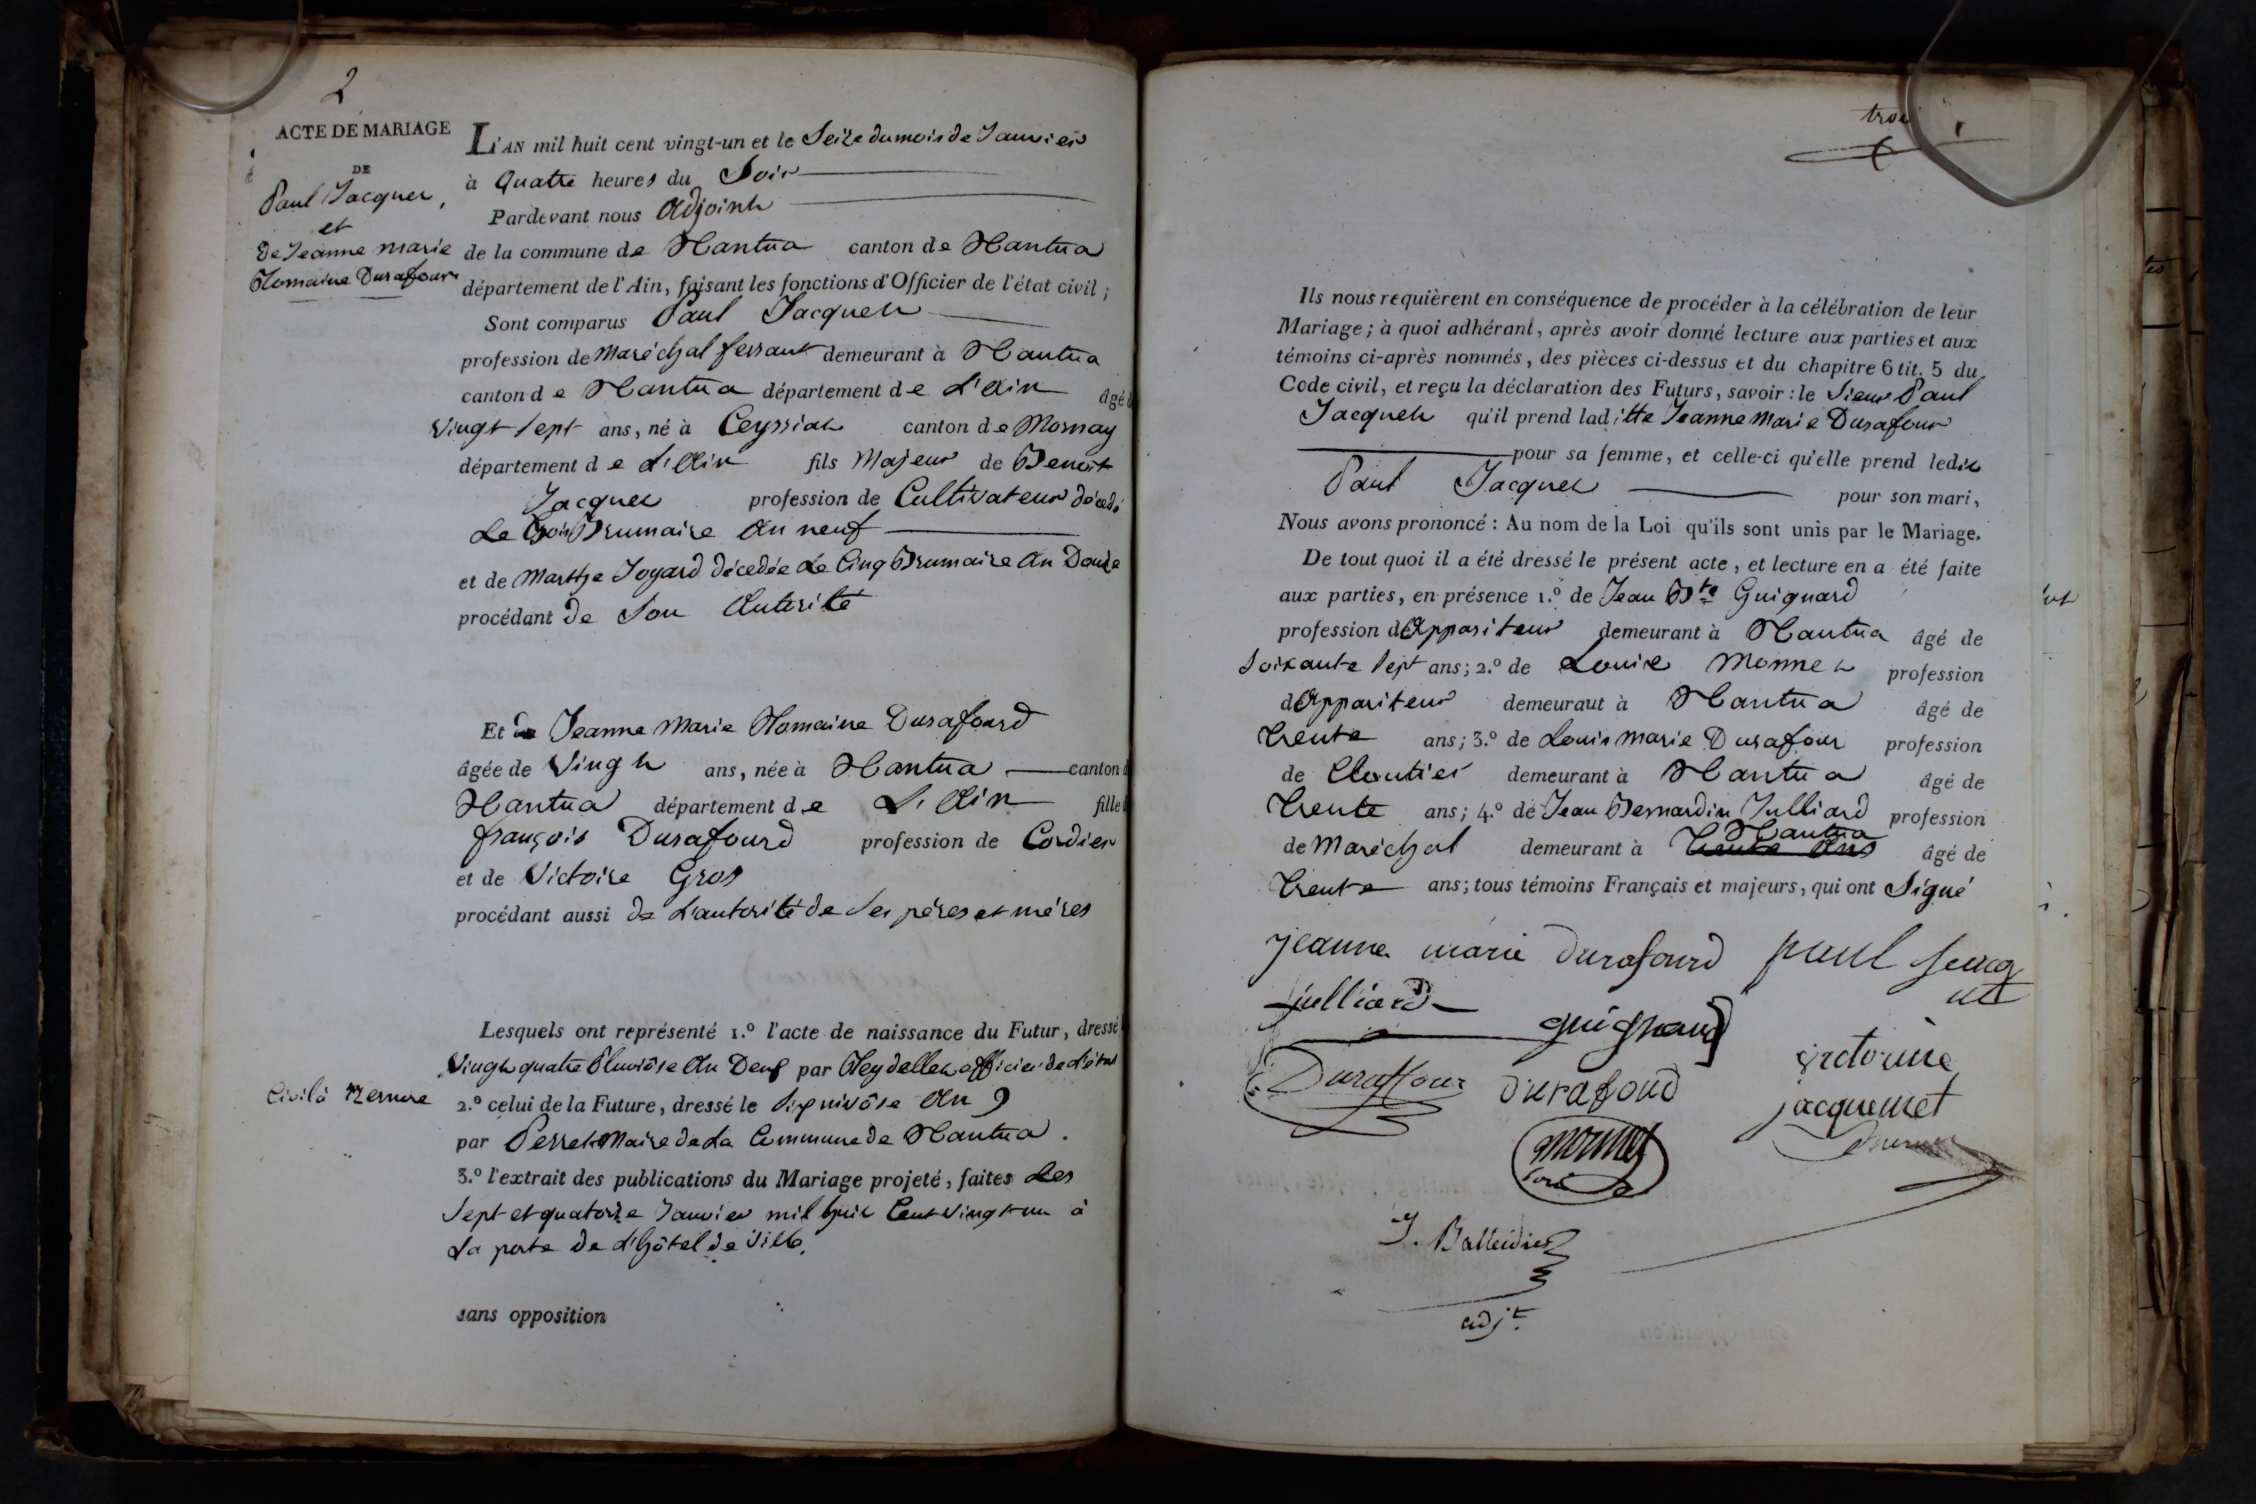 2
ACTE DE MARIAGE
DE
Paul Jacquet,
et
de Jeanne Marie
Romaine Durafour
L'AN mil huit cent vingt-un et le Seize du mois de Janvier
à quatre heures du Soir
Pardevant nous Adjoint
de la commune de Nantua canton de Nantua
département de l'Ain, faisant les fonctions d'Officier de l'état civil;
Sont comparus Paul Jacquet
profession de Maréchal ferrant demeurant à Nantua
canton de Nantua département de L'Ain âgé
vingt sept ans, né à Ceyssiat canton de Mornay
département de L'Ain fils Majeur de Benoit
Jacquet profession de Cultivateur décédé
Le trois Brumaire An neuf
et de Marthe Joyard décedée Le Cinq Brumaire An Douze
procédant de Son Autorité
Et de Jeanne Marie Romaine Durafourd
âgée de Vingt ans, née à Nantua canton
Nantua département de L'Ain fille
françois Durafourd profession de Cordier
et de Victoire Gros
procédant aussi de L'autorité de Ses péres et méres
Lesquels ont représenté 1.° l'acte de naissance du Futur, dressé
Vingt quatre Pluviôse An Deux par officier de L'état
Civil à
2.° celui de la Future, dressé le Six nivôse An 9
par Perret Maire de La Commune de Nantua.
3.° l'extrait des publications du Mariage projeté, faites Les
Sept et quatorze Janvier mil huit Cent vingt un à
La porte de L'hôtel de Ville,
sans opposition
trois
Ils nous requièrent en conséquence de procéder à la célébration de leur
Mariage; à quoi adhérant, après avoir donné lecture aux parties et aux
témoins ci-après nommés, des pièces ci-dessus et du chapitre 6 tit. 5 du
Code civil, et reçu la déclaration des Futurs, savoir: le Sieur Paul
Jacquet qu'il prend laditte Jeanne Marie Durafour
pour sa femme, et celle-ci qu'elle prend ledit
Paul Jacquet pour son mari,
Nous avons prononcé: Au nom de la Loi qu'ils sont unis par le Mariage.
De tout quoi il a été dressé le présent acte, et lecture en a été faite
aux parties, en présence 1.° de Jean Bte Guignard
profession d'Appariteur demeurant à Nantua âgé de
Soixante Sept ans; 2.° de Louis Monnet profession
d'Appariteur demeurant à Nantua âgé de
Trente ans; 3.° de Louis Marie Durafour profession
de Cloutier demeurant à Nantua âgé de
Trente ans; 4.° de Jean Bernardin Julliard profession
Nantua
de Maréchal demeurant à Trente Ans âgé de
Trente ans; tous témoins Français et majeurs, qui ont Signé
jeanne marie durafourd paul jacq
uet
julliard
guignard
Duraffour durafoud
victoirie
jacquemet
monnet
J. Balleidier
adjt.